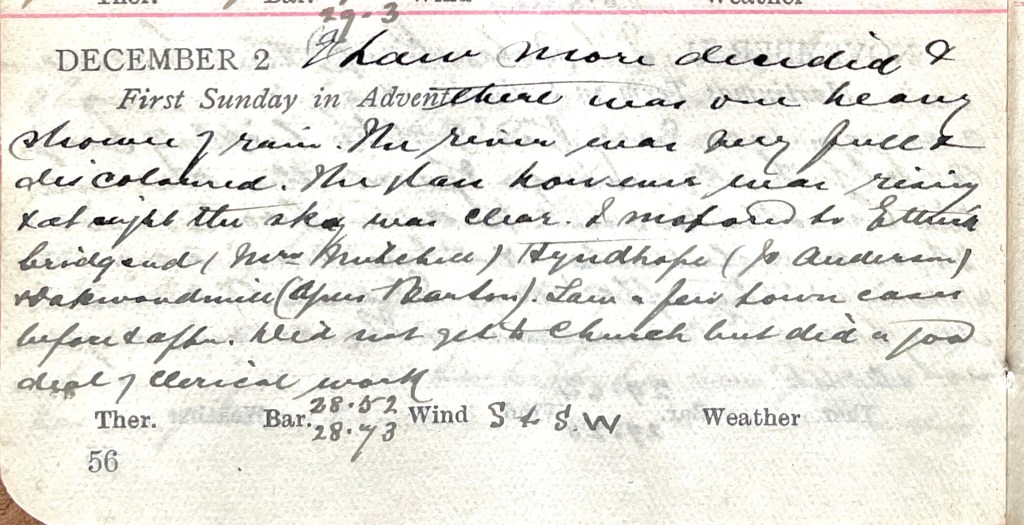 Ther. Bar. Wind Weather
29.3
DECEMBER 2 Thaw more decided &
First Sunday in Advent there was one heavy
shower of rain. The river was very full &
discoloured. The glass however was rising
& at night the sky was clear. I motored to Ettrick
bridgend (Mrs Mitchell) Hyndhope (Jo Anderson)
& Oakwoodmill (Agnes Barton). Saw a few town cases
before & after. Did not get to Church but did a good
deal of clerical work
Ther. Bar. 28.52 Wind S & S.W Weather
28.73
56